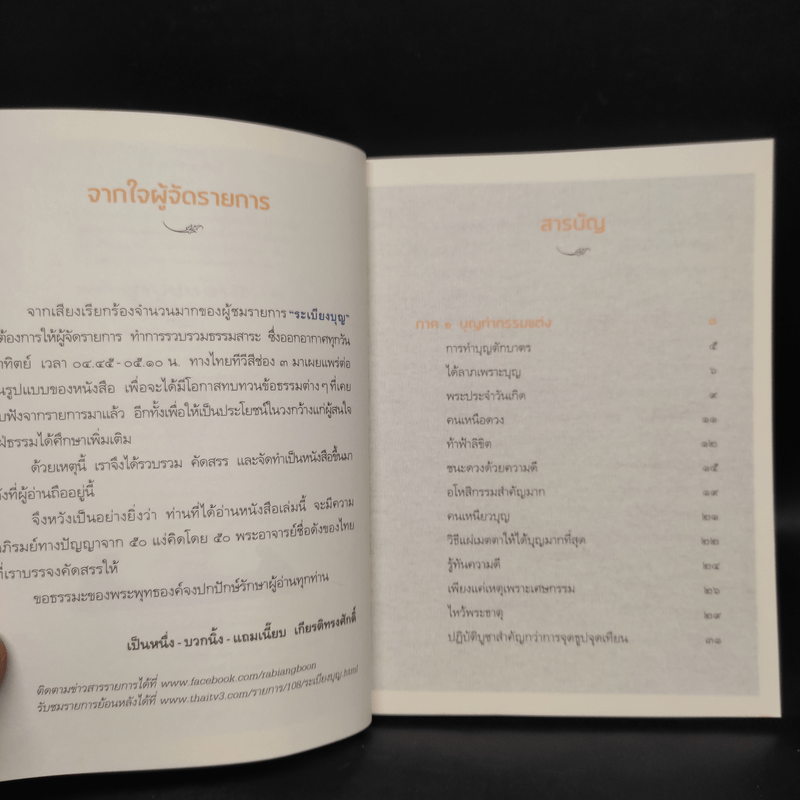 จากใจผู้จัดรายการ
จากเสียงเรียกร้องจำนวนมากของผู้ชมรายการ "ระเบียงบุญ"
ต้องการให้ผู้จัดรายการ ทำการรวบรวมธรรมสาระ ซึ่งออกอากาศทุกวัน
าทิตย์ เวลา ๐๔.๔๕-๐๕.๑๐ น. ทางไทยทีวีสีช่อง ๓ มาเผยแพร่ต่อ
นรูปแบบของหนังสือ เพื่อจะได้มีโอกาสทบทวนข้อธรรมต่างๆ ที่เคย
บฟังจากรายการมาแล้ว อีกทั้งเพื่อให้เป็นประโยชน์ในวงกว้างแก่ผู้สนใจ
ฝ่ธรรมได้ศึกษาเพิ่มเติม
ด้วยเหตุนี้ เราจึงได้รวบรวม คัดสรร และจัดทำเป็นหนังสือขึ้นมา
ังที่ผู้อ่านถืออยู่นี้
จึงหวังเป็นอย่างยิ่งว่า ท่านที่ได้อ่านหนังสือเล่มนี้ จะมีความ
ภิรมย์ทางปัญญาจาก ๕๐ แง่คิดโดย ๕๐ พระอาจารย์ชื่อดังของไทย
ที่เราบรรจงคัดสรรให้
ขอธรรมะของพระพุทธองค์จงปกปักษ์รักษาผู้อ่านทุกท่าน
เป็นหนึ่ง - บวกนิ้ง - แถมเนี๊ยบ เกียรติทรงศักดิ์
ติดตามข่าวสารรายการได้ที่ www.facebook.com/rabiangboon
รับชมรายการย้อนหลังได้ที่ www.thaitv3.com/รายการ/108/ระเบียงบุญ.html
สารบัญ
ภาค ๑ บุญทำกรรมแต่ง
การทำบุญตักบาตร ๕
ได้ลาภเพราะบุญ ๖
พระประจำวันเกิด ๙
คนเหนือดวง ๑๑
ท้าฟ้าลิขิต ๑๒
ชนะดวงด้วยความดี ๑๕
อโหสิกรรมสำคัญมาก ๑๙
คนเหนียวบุญ ๒๑
วิธีแผ่เมตตาให้ได้บุญมากที่สุด ๒๒
รู้ทันความดี ๒๔
เพียงแค่เหตุเพราะเศษกรรม ๒๖
ไหว้พระธาตุ ๒๙
ปฏิบัติบูชาสำคัญกว่าการจุดธูปจุดเทียน ๓๑